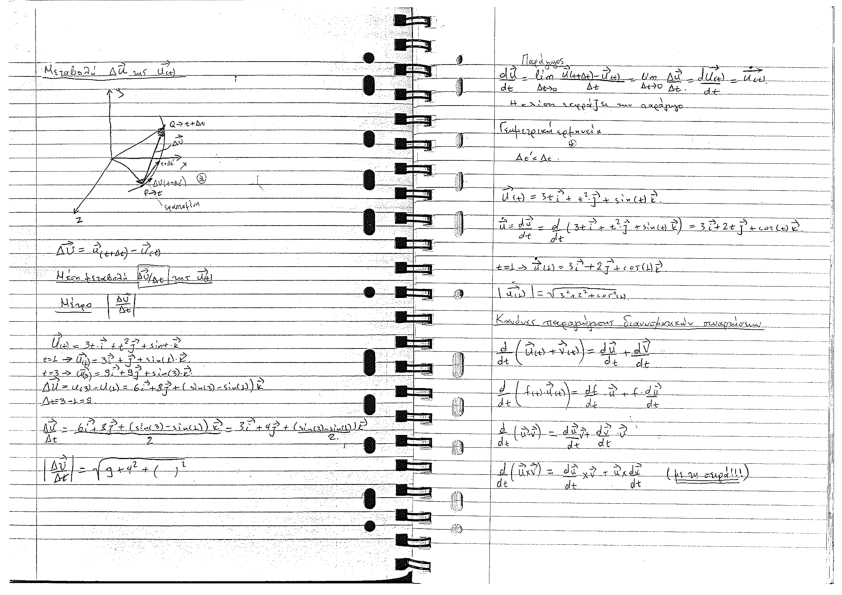 Μεταβολή Δu⃗ της u⃗(t)
y
Q→t+Δt
Δu⃗
t+Δt'
x
Δu(t+Δt')
P→t
z
Δu⃗ = u⃗(t+Δt) - u⃗(t)
Μέση μεταβολή Δu⃗/Δt της u⃗(t)
Μέτρο |Δu⃗/Δt|
u⃗(t) = 3t·i⃗ + t²j⃗ + sint·k⃗
t=1 → u⃗(1) = 3i⃗ + j⃗ + sin(1)·k⃗
t=3 → u⃗(3) = 9i⃗ + 9j⃗ + sin(3)·k⃗
Δu⃗ = u(3) - u(1) = 6i⃗ + 8j⃗ + (sin(3) - sin(1)) k⃗
Δt=3-1=2
Δu⃗/Δt = (6i⃗ + 8j⃗ + (sin(3) - sin(1)) k⃗)/2 = 3i⃗ + 4j⃗ + (sin(3) - sin(1)) k⃗/2
|Δu⃗/Δt| = √(9 + 4² + ( )²)
Παράγωγος
du⃗/dt = lim Δt→0 (u⃗(t+Δt) - u⃗(t))/Δt = lim Δt→0 Δu⃗/Δt = du⃗(t)/dt = u̇⃗(t)
Η κλίση εκφράζει την παράγωγο
Γεωμετρική ερμηνεία
Δt' < Δt
u⃗(t) = 3ti⃗ + t²·j⃗ + sin(t) k⃗
u̇⃗ = du⃗/dt = d/dt (3ti⃗ + t²·j⃗ + sin(t) k⃗) = 3i⃗ + 2tj⃗ + cos(t) k⃗
t=1 → u̇⃗(1) = 3i⃗ + 2j⃗ + cos(1) k⃗
|u̇⃗(1)| = √(3² + 2² + cos²(1))
Κανόνες παραγώγισης διανυσματικών συναρτήσεων
d/dt (u⃗(t) + v⃗(t)) = du⃗/dt + dv⃗/dt
d/dt (f(t)·u⃗(t)) = df/dt · u⃗ + f· du⃗/dt
d/dt (u⃗·v⃗) = du⃗/dt v⃗ + dv⃗/dt · v⃗
d/dt (u⃗×v⃗) = du⃗/dt × v⃗ + u⃗× dv⃗/dt (με τη σειρά!!!)